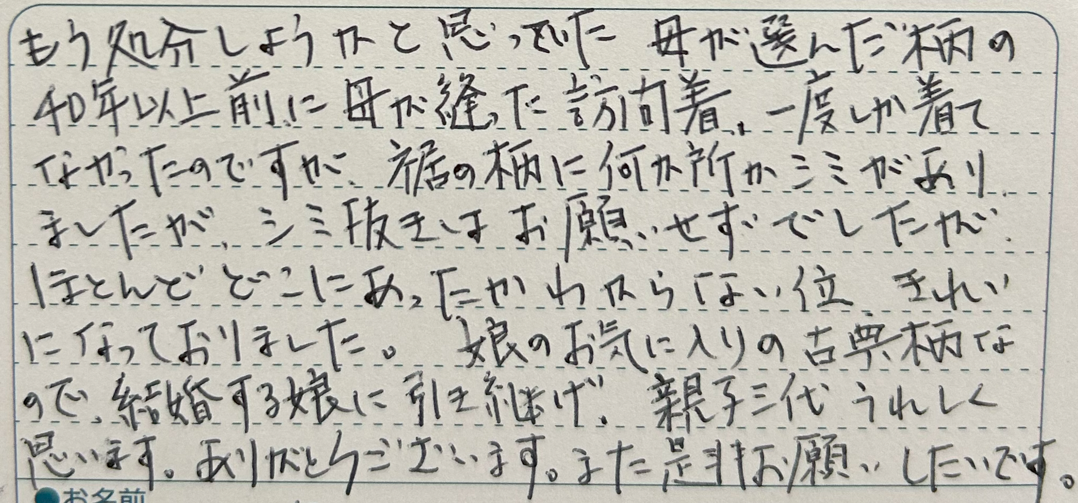 もう処分しようかと思っていた 母が選んだ柄の
40年以上前に母が縫った訪問着、一度しか着て
なかったのですが、裾の柄に何か所かシミがあり
ましたが、シミ抜きはお願いせずでしたが、
ほとんどどこにあったかわからない位 きれい
になっておりました。 娘のお気に入りの古典柄な
ので、結婚する娘に引き継げ、親子三代うれしく
思います。ありがとうございます。また是非お願いしたいです。
●お名前